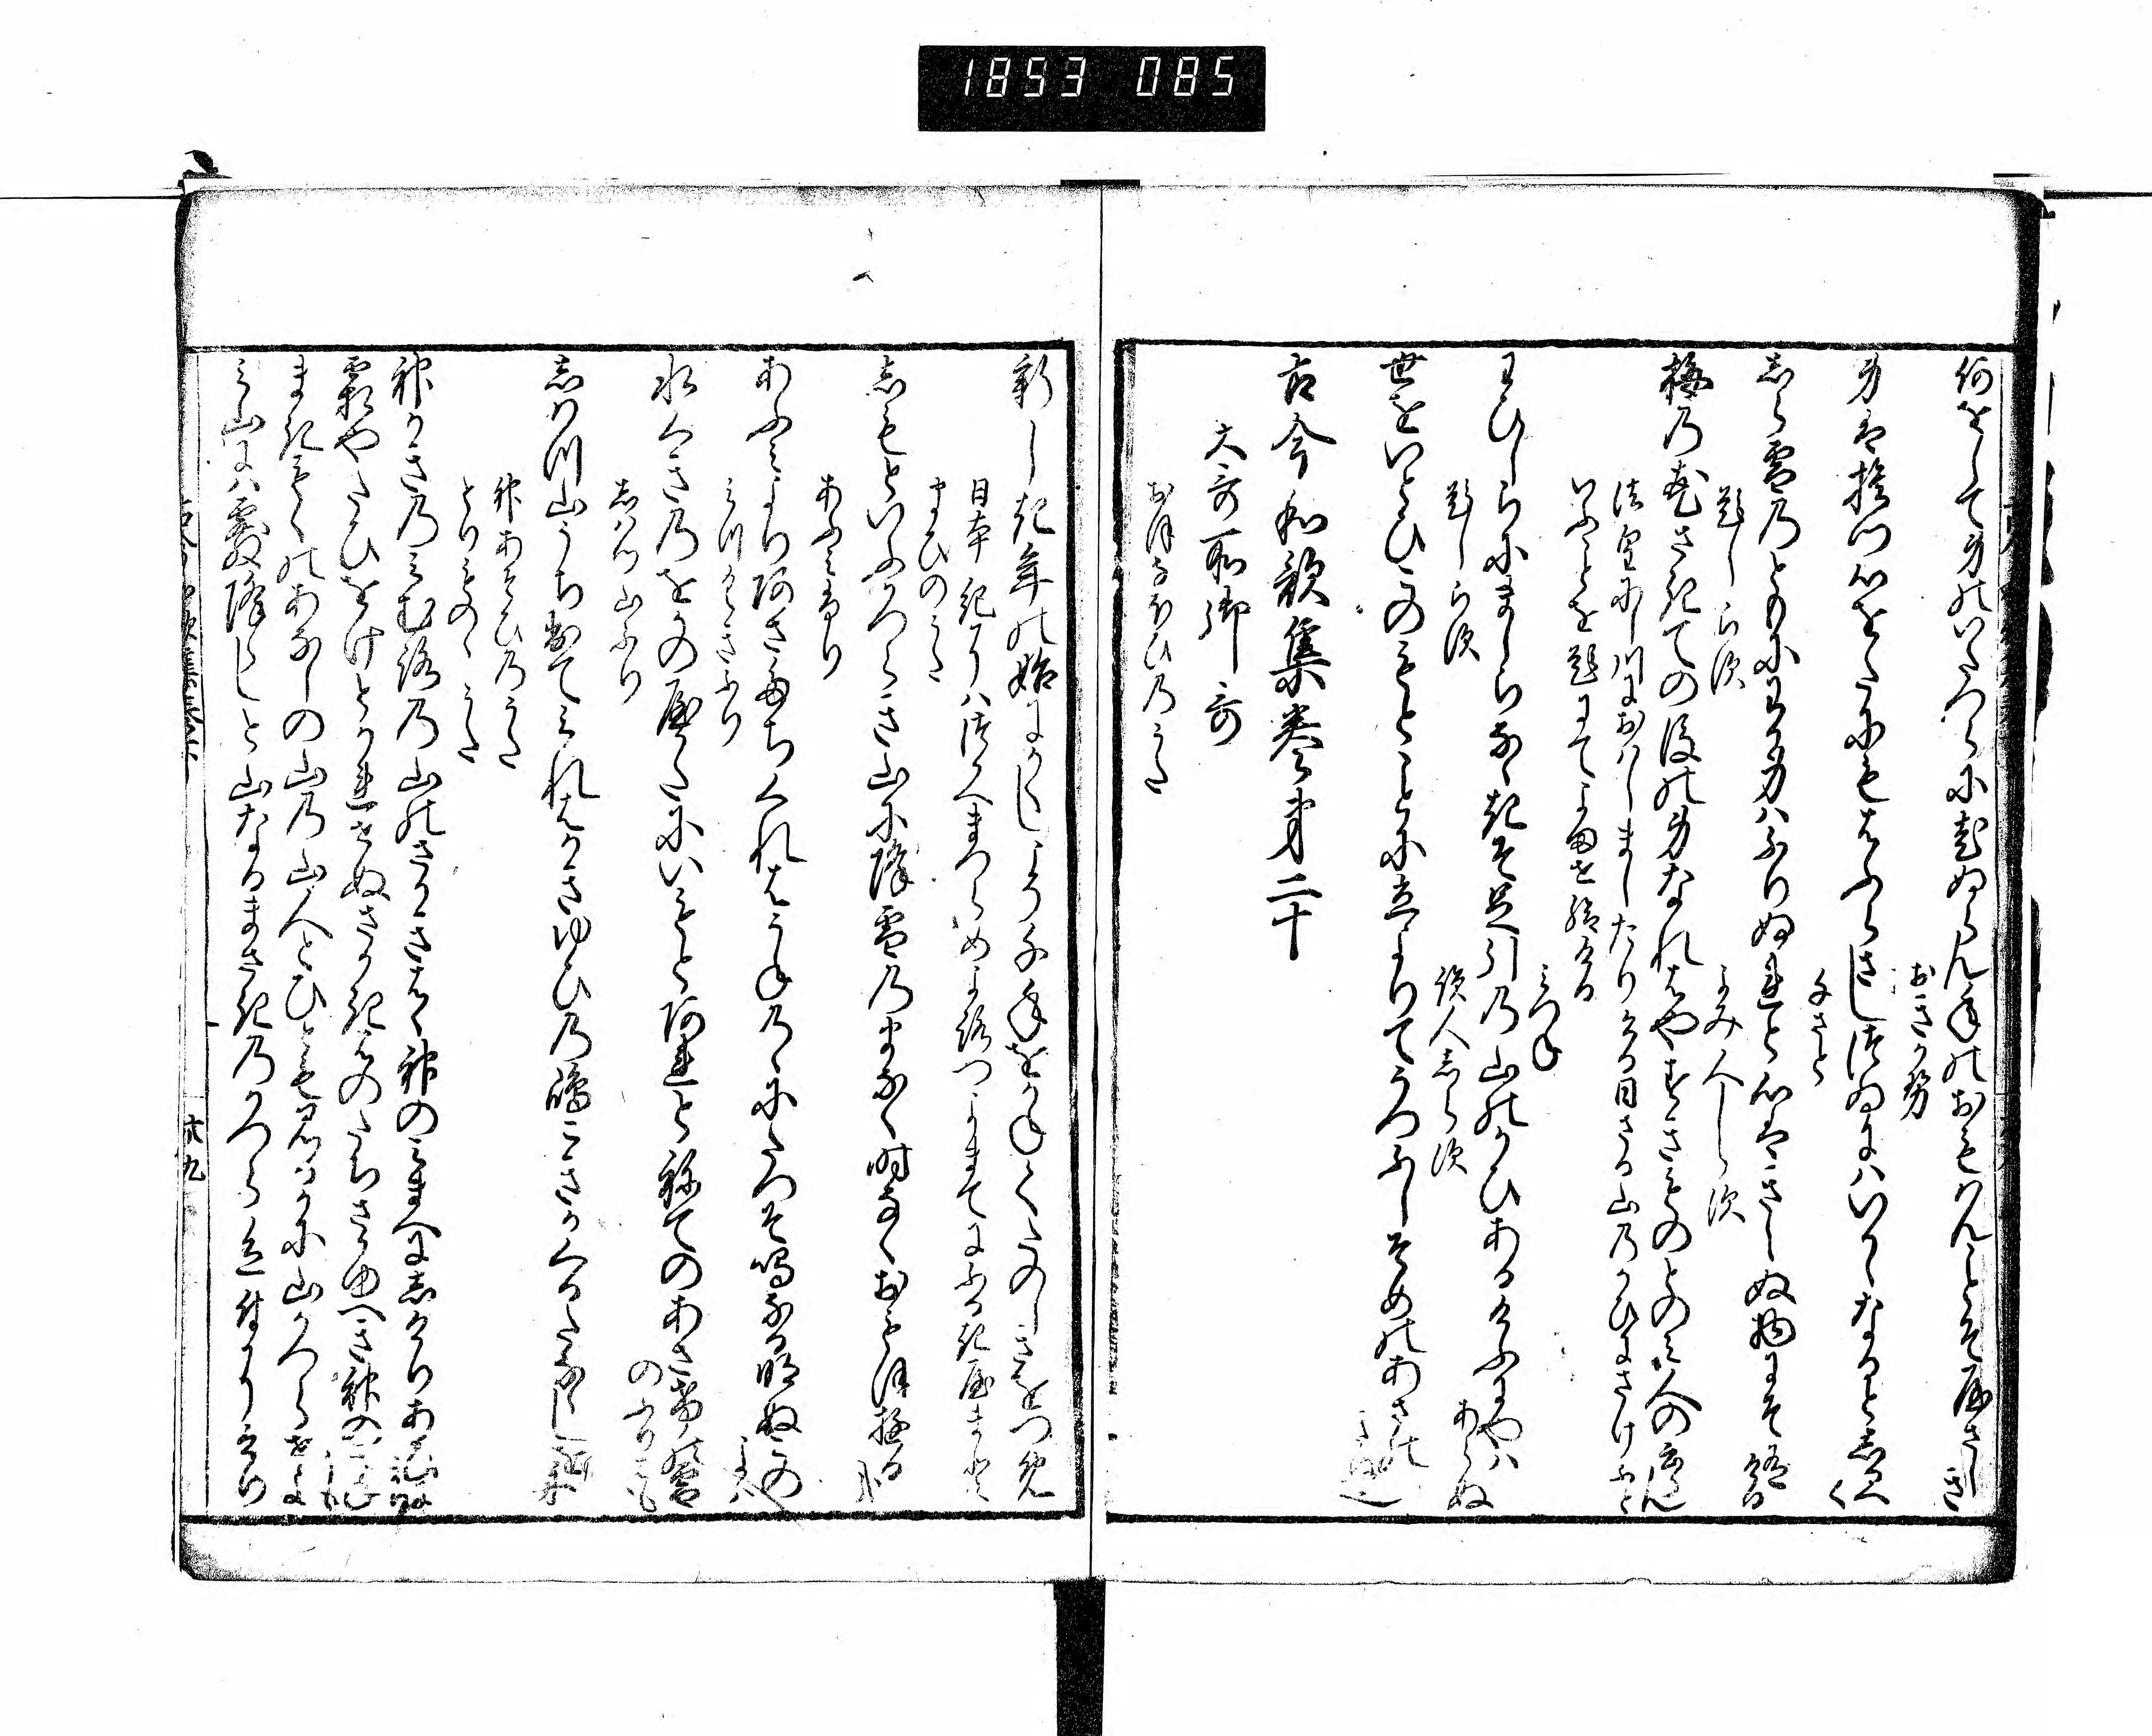 1853 085
何をして身のいたつらに老ぬらん年のおもはんことそやさしき
おきかせ
身は捨つ心をたにもはふらさしつゐにはいかゝなるとしるへく
千さと
しら雪のともに我身はふりぬれと心はきえぬ物にそ有ける
題しらす
よみ人しらす
梅の花さきての後の身なれはやすき物とのみ人のいふらん
法皇にし川におはしましたりける日さる山のかひにさけふと
いふことを題にてよませ給ける
みつね
わひしらにましらなゝきそ足引の山のかひあるけふにやはあらぬ
題しらす
読人しらす
世をいとひこのもとことに立よりてうつふしそめのあさのきぬ也
古今和歌集巻第二十
大哥所御哥
おほなほひのうた
新しき年の始にかくしこそ千年をかねてたのしきをつめ
日本紀にはつかへまつらめよろつよまてに
ふるきやまと
まひのうた
しもとゆふかつらき山に降雪のまなく時なくおもほゆる哉
あふみふり
あふみより朝たちくれはうねのゝにたつそ鳴なる明ぬこのよは
みつくきふり
水くきのをかのやかたにいもとあれとねてのあさけの霜のふりはも
しはつ山ふり
しはつ山うち出てみれはかさゆひの嶋こきかくるたなゝし小舟
神あそひのうた
とりものゝうた
神かきのみむろの山のさかきはゝ神のみまへにしけりあひにけり
霜やたひをけとかれせぬさかきはのたちさかゆへき神のきねかも
まきもくのあなしの山の山人とひともみるかに山かつらせよ
み山には霰降らしと山なるまさきのかつら色付にけり
六九